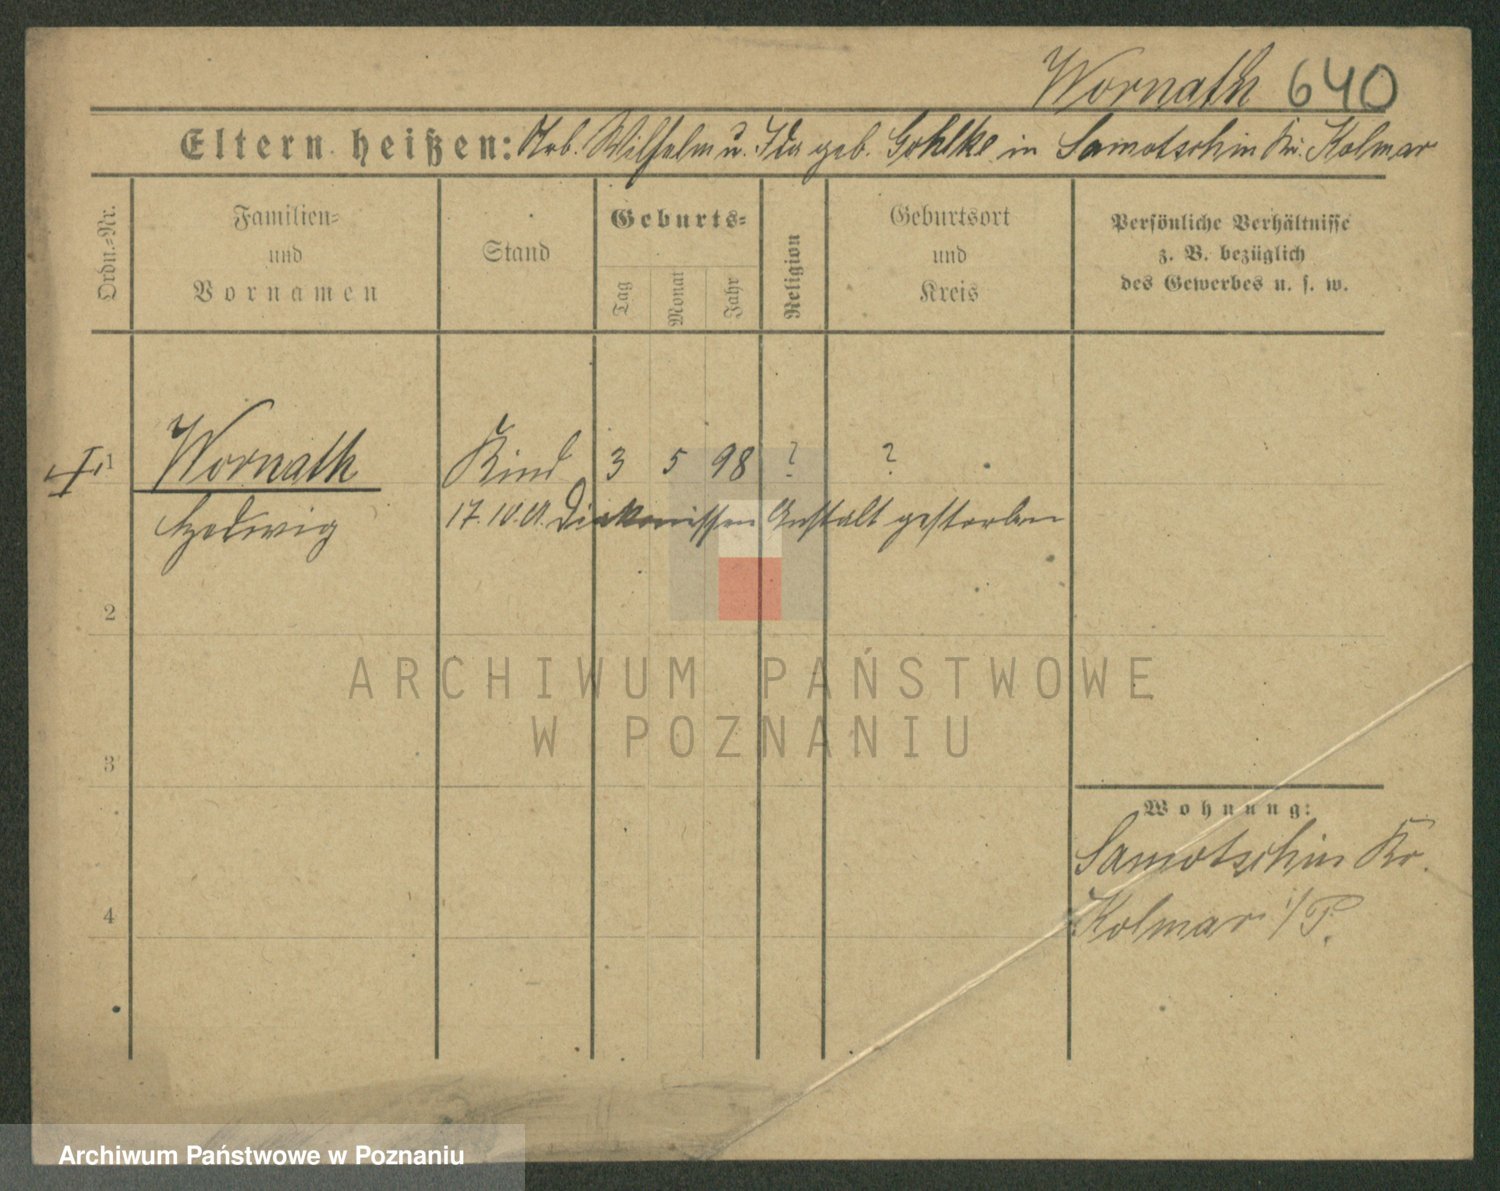 Wornath 640
Eltern heißen: Arb. Wilhelm u. Ida geb. Gohlke in Samotschin Kr. Kolmar
Ordn.=Nr.
Familien=
und
Vornamen
Stand
Geburts=
Tag
Monat
Jahr
Religion
Geburtsort
und
Kreis
Persönliche Verhältnisse
z. B. bezüglich
des Gewerbes u. s. w.
1 Wornath Kind 3 5 98 ? ?
Hedwig 17. 10. 01. Diakonissen Anstalt gestorben
2
ARCHIWUM PAŃSTWOWE
W POZNANIU
3
Wohnung:
Samotschin Kr.
4
Kolmar i/P.
Archiwum Państwowe w Poznaniu